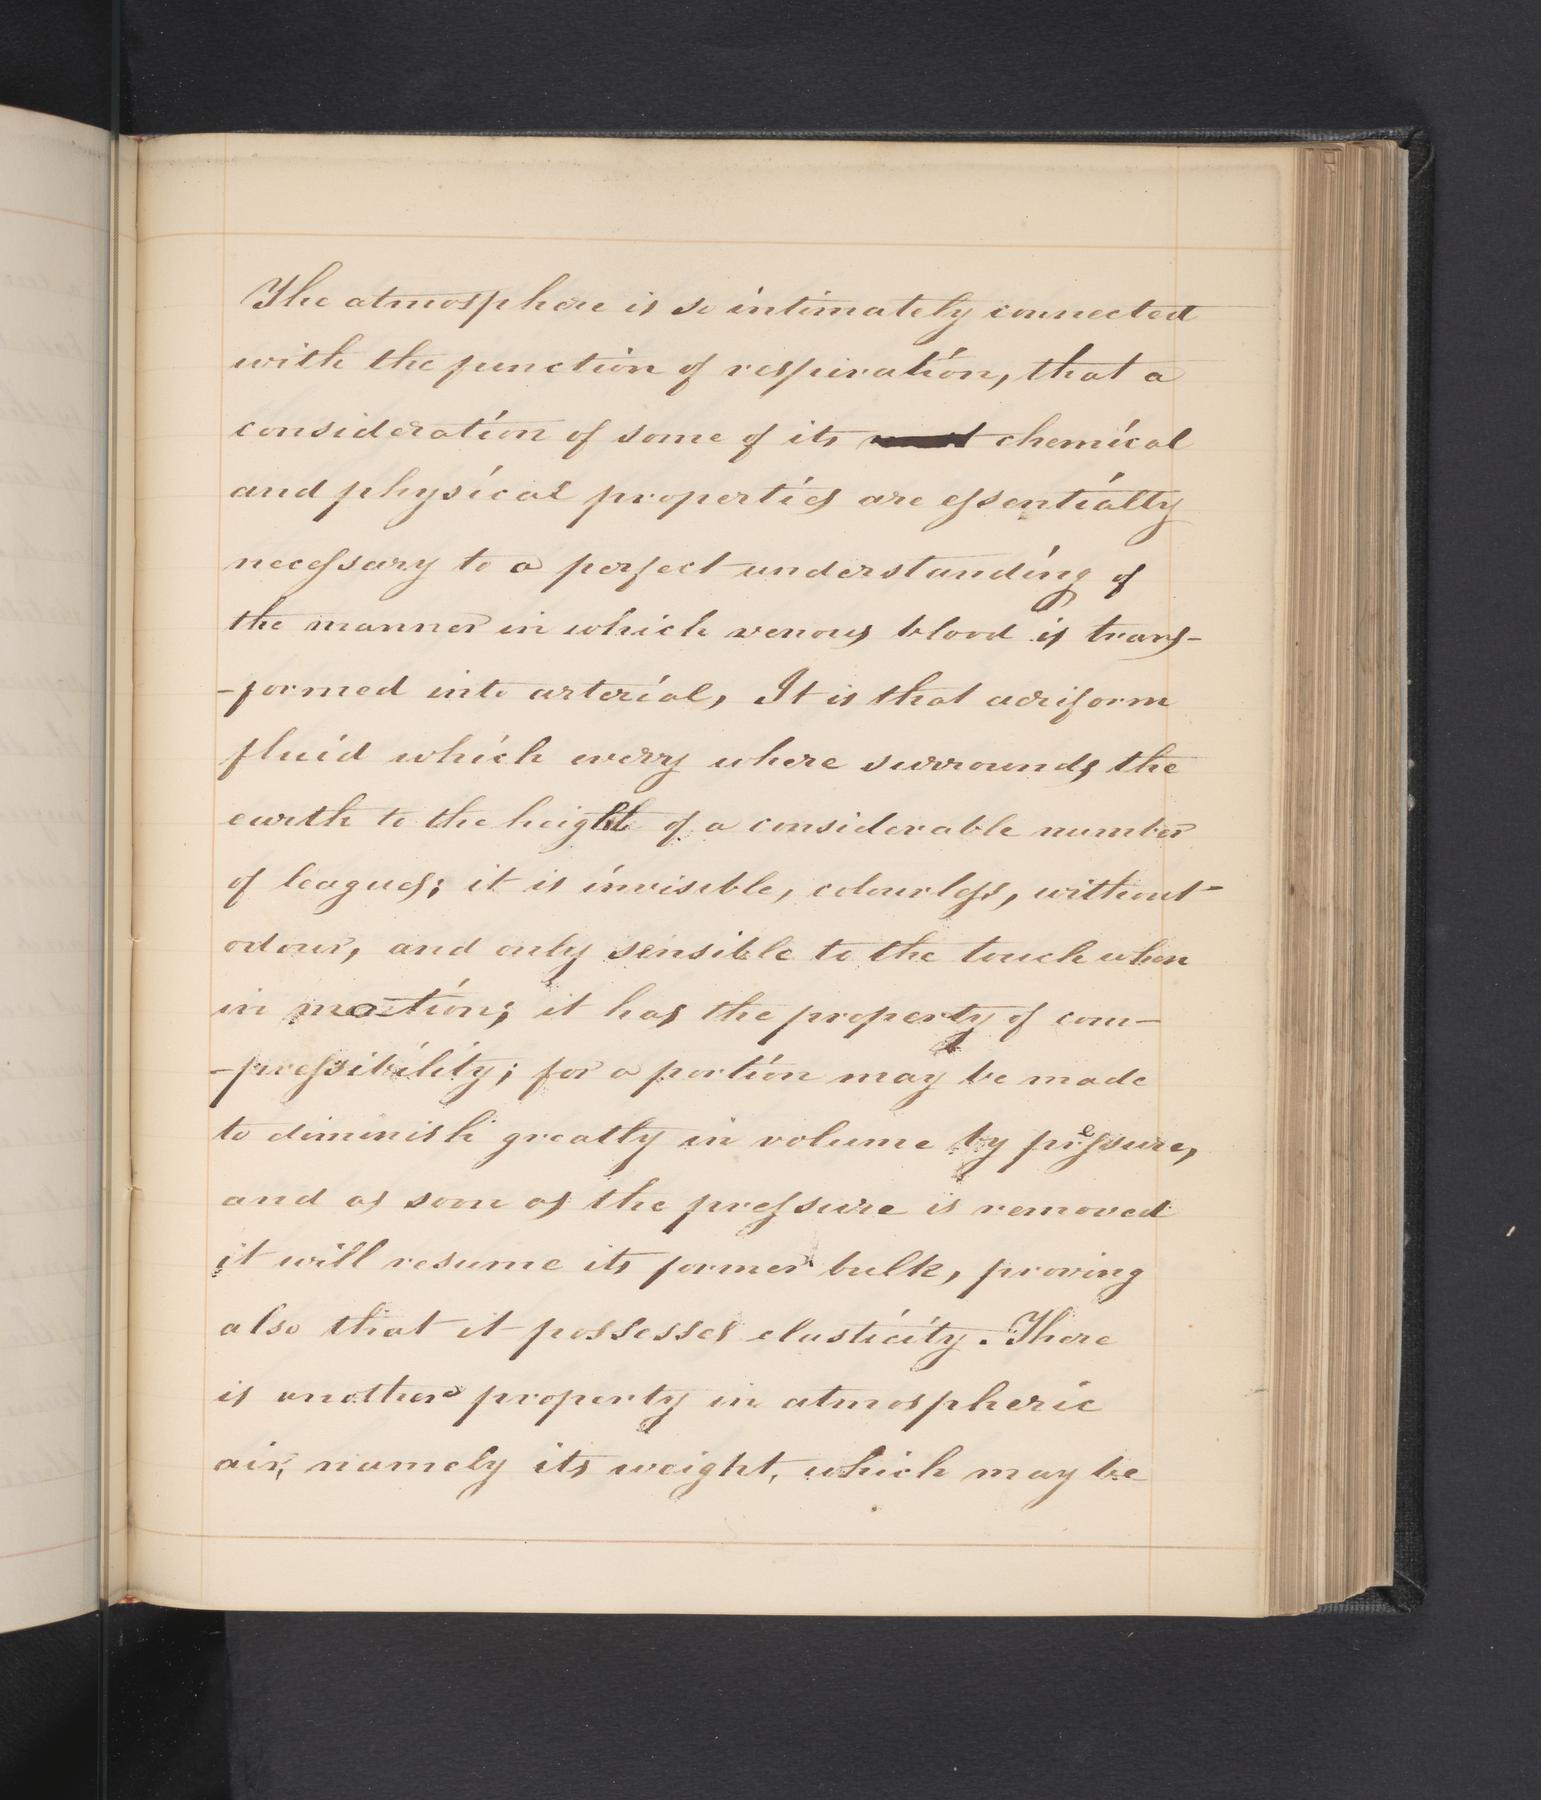 The atmosphere is so intimately connected
with the function of respiration, that a
consideration of some of its chemical
and physical properties are essentially
necessary to a perfect understanding of
the manner in which venous blood is trans-
-formed into arterial, It is that aeriform
fluid which every where surrounds the
earth to the height of a considerable number
of leagues; it is invisible, colourless, without
odour, and only sensible to the touch when
in motion; it has the property of com-
-pressibility; for a portion may be made
to diminish greatly in volume by pressure,
and as soon as the pressure is removed
it will resume its former bulk, proving
also that it possesses elasticity. There
is another property in atmospheric
air, namely its weight, which may be